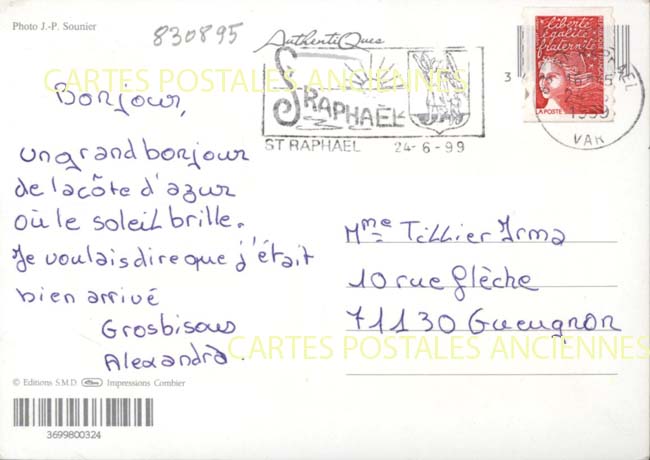 Photo J.-P. Sounier
830895
AuthentiQues
St RAPHAËL
ST RAPHAEL 24-6-99
3
liberté
égalité
fraternité
LA POSTE
1999
VAR
CARTES POSTALES ANCIENNES
Bonjour,
un grand bonjour
de la côte d'azur
où le soleil brille.
Je voulais dire que j'était
bien arrivé
Grosbisous
Alexandra.
Mme Tillier Irma
10 rue flèche
71130 Gueugnon
CARTES POSTALES ANCIENNES
© Editions S.M.D Impressions Combier
3699800324